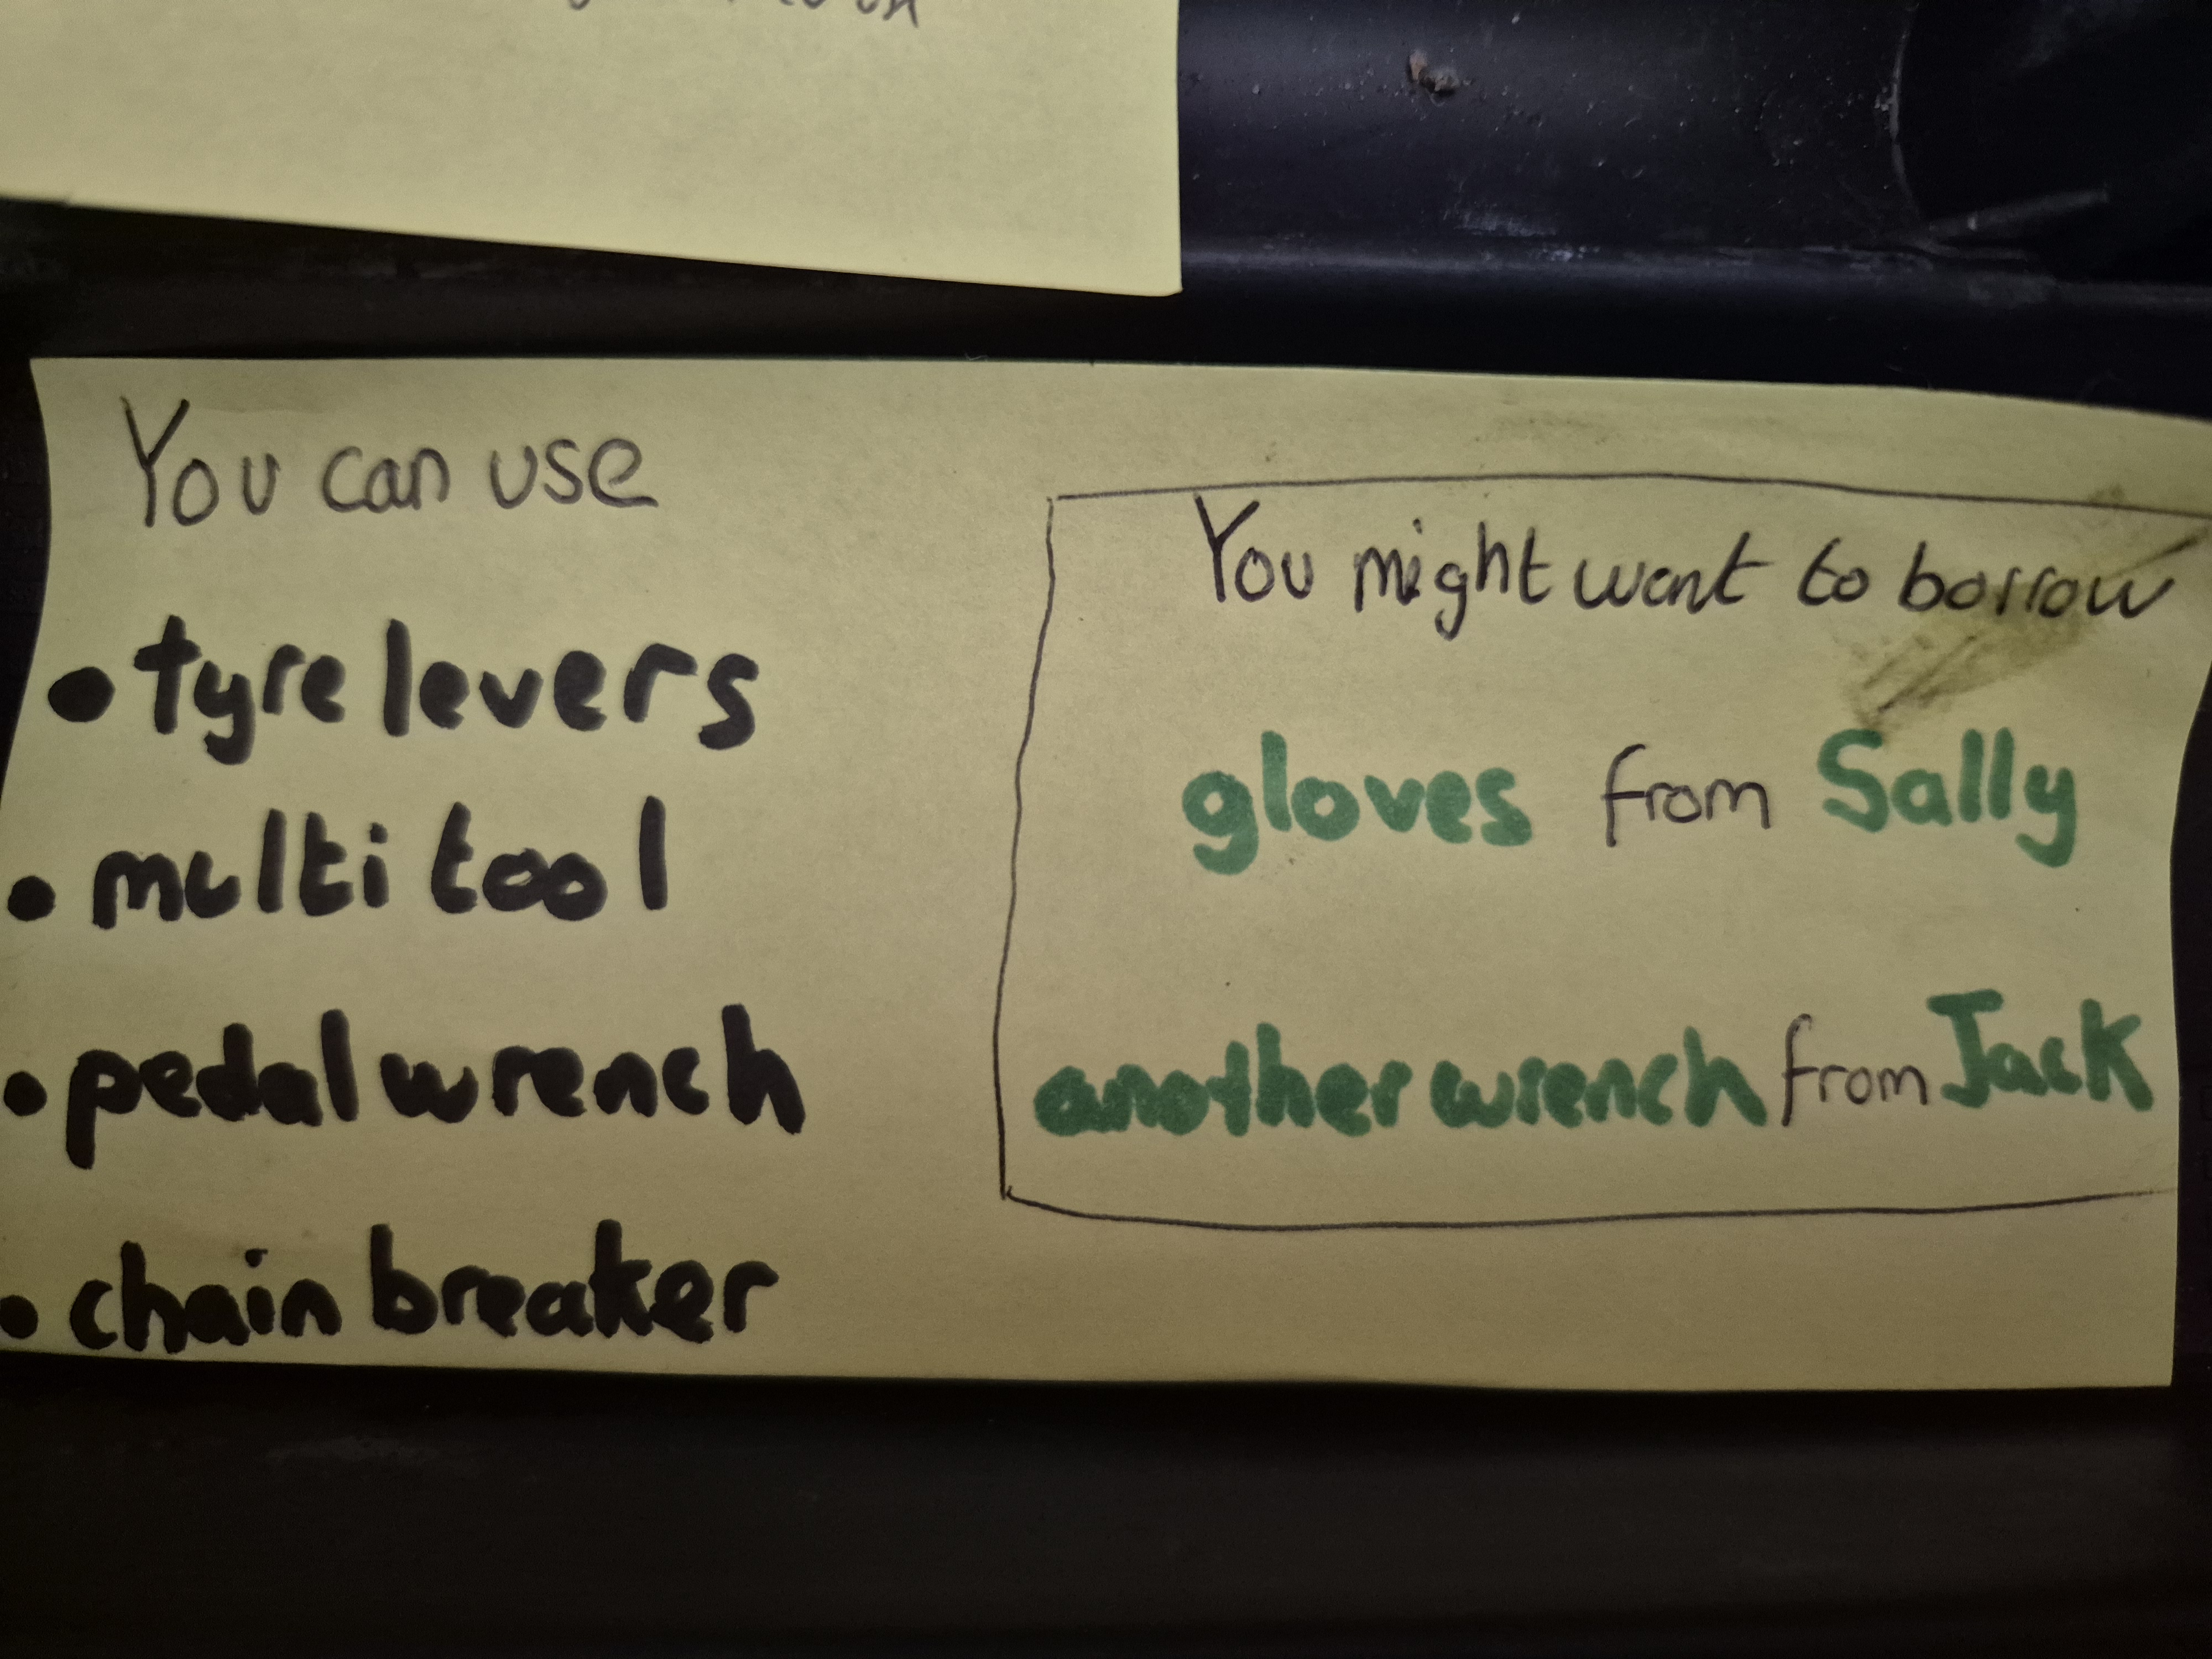 You can use
• tyre levers
• multi tool
• pedal wrench
• chain breaker
You might want to borrow
gloves from Sally
another wrench from Jack